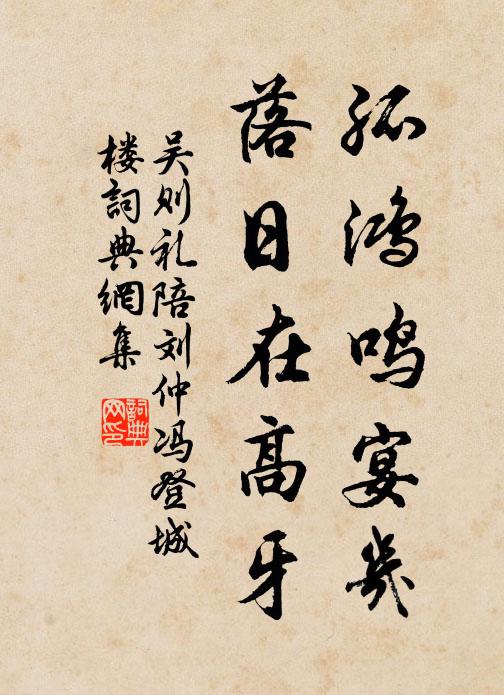 孤鸿鸣宴几
落日在高牙
吴则礼陪刘仲冯登城
楼詞典網集
詞典
网印